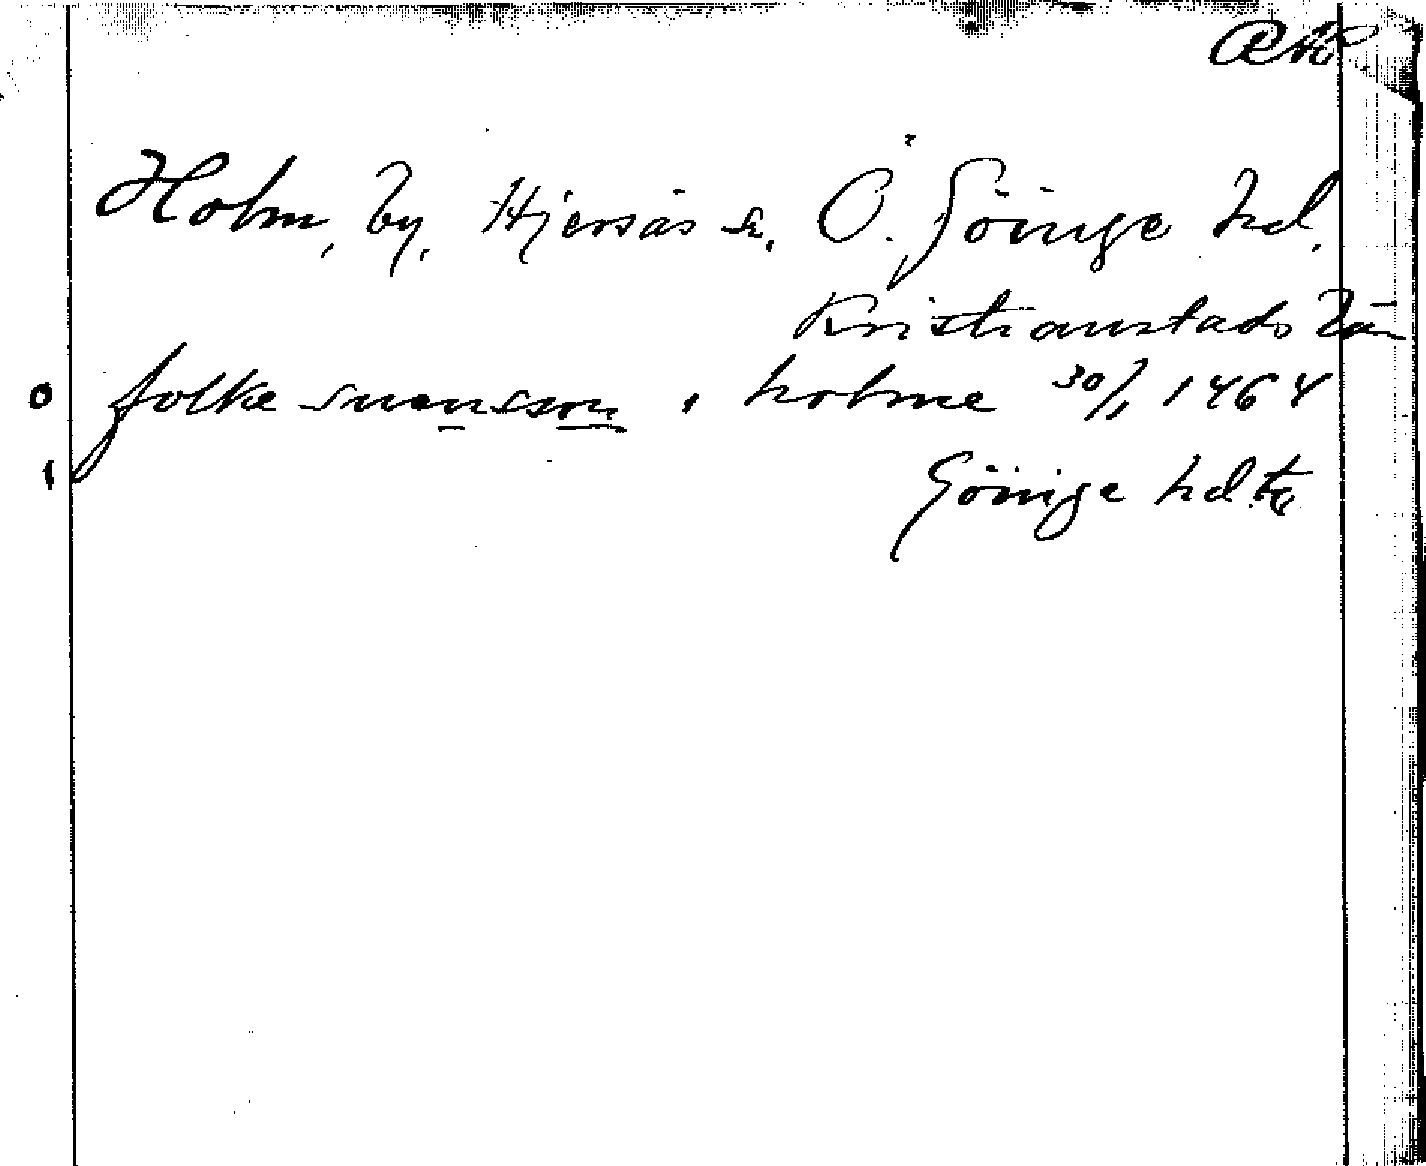 Holm, by, Hjersås sn, Ö. Göinge hd.
Kristianstads län
folke suensson i holme 30/1 1464
Göinge hd